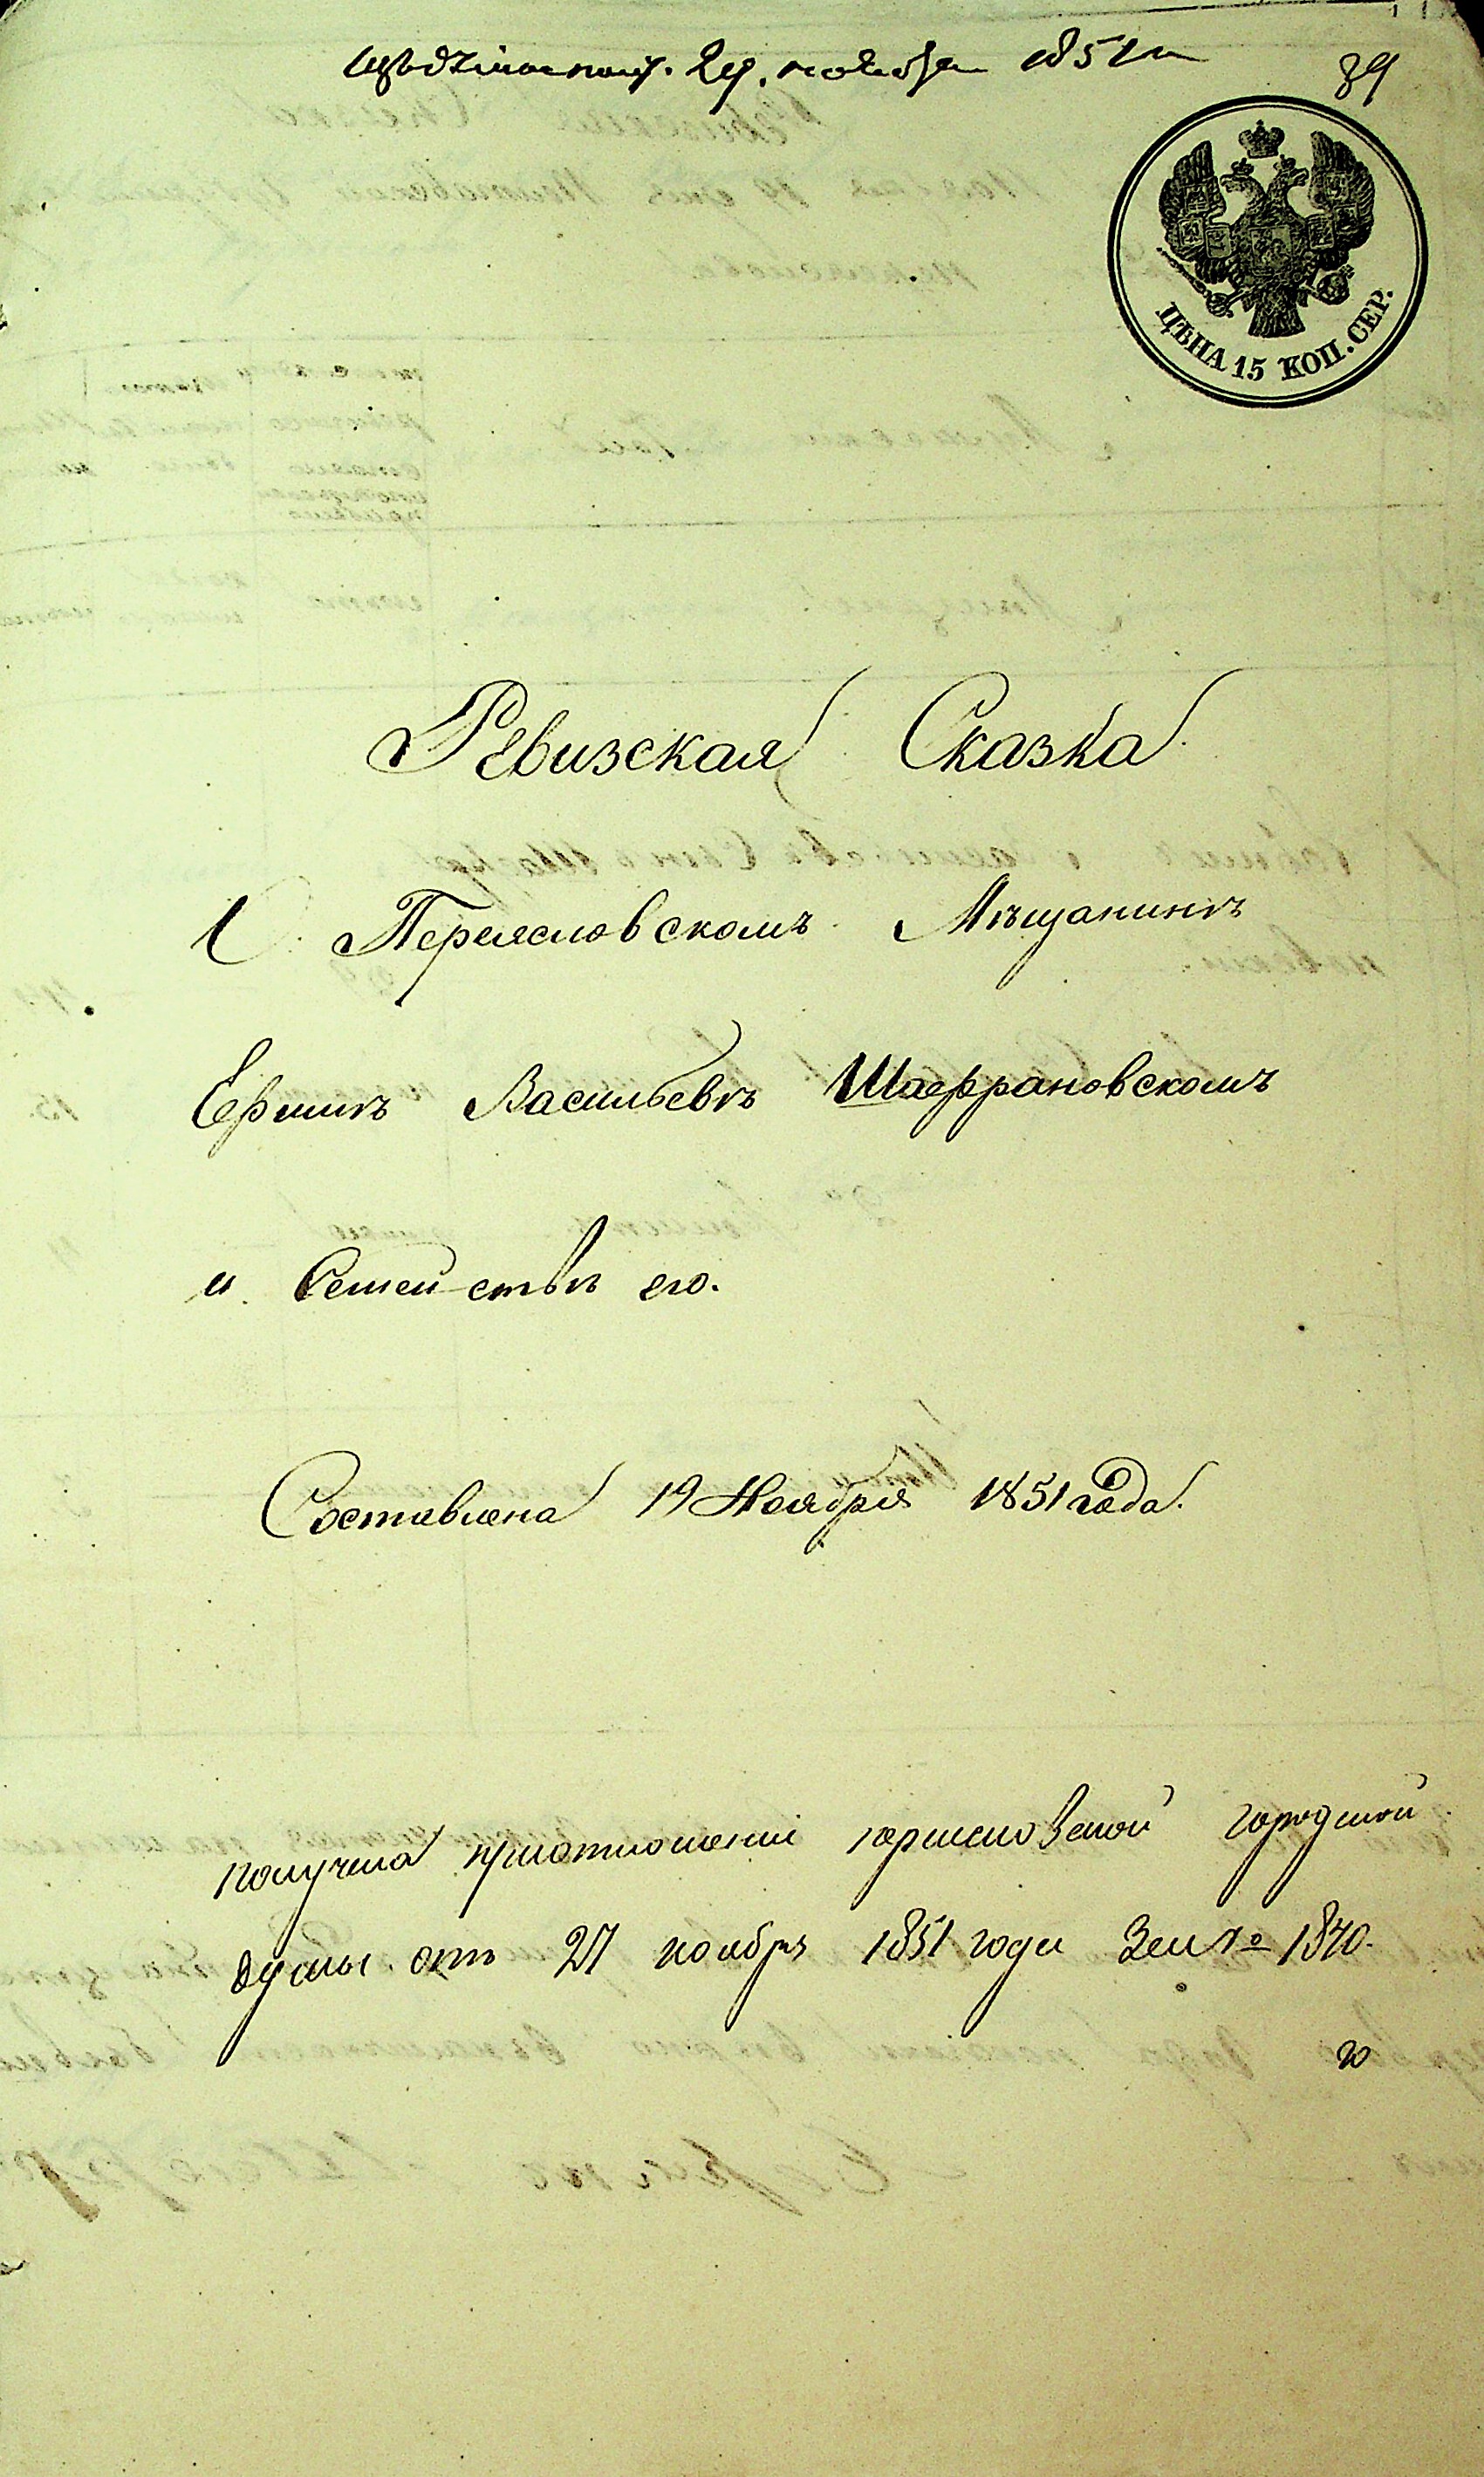 29. ноября 1851 г
89
ЦѢНА 15 КОП. СЕР.
Ревизская Сказка
О Переясловскомъ Мѣщанинѣ
Ефимѣ Васильевѣ Шафрановскомъ
и Семействѣ его.
Составлена 19 Ноября 1851 года.
получена приотношеніи переясловской городской
думы отъ 27 ноября 1851 года За № 1840.